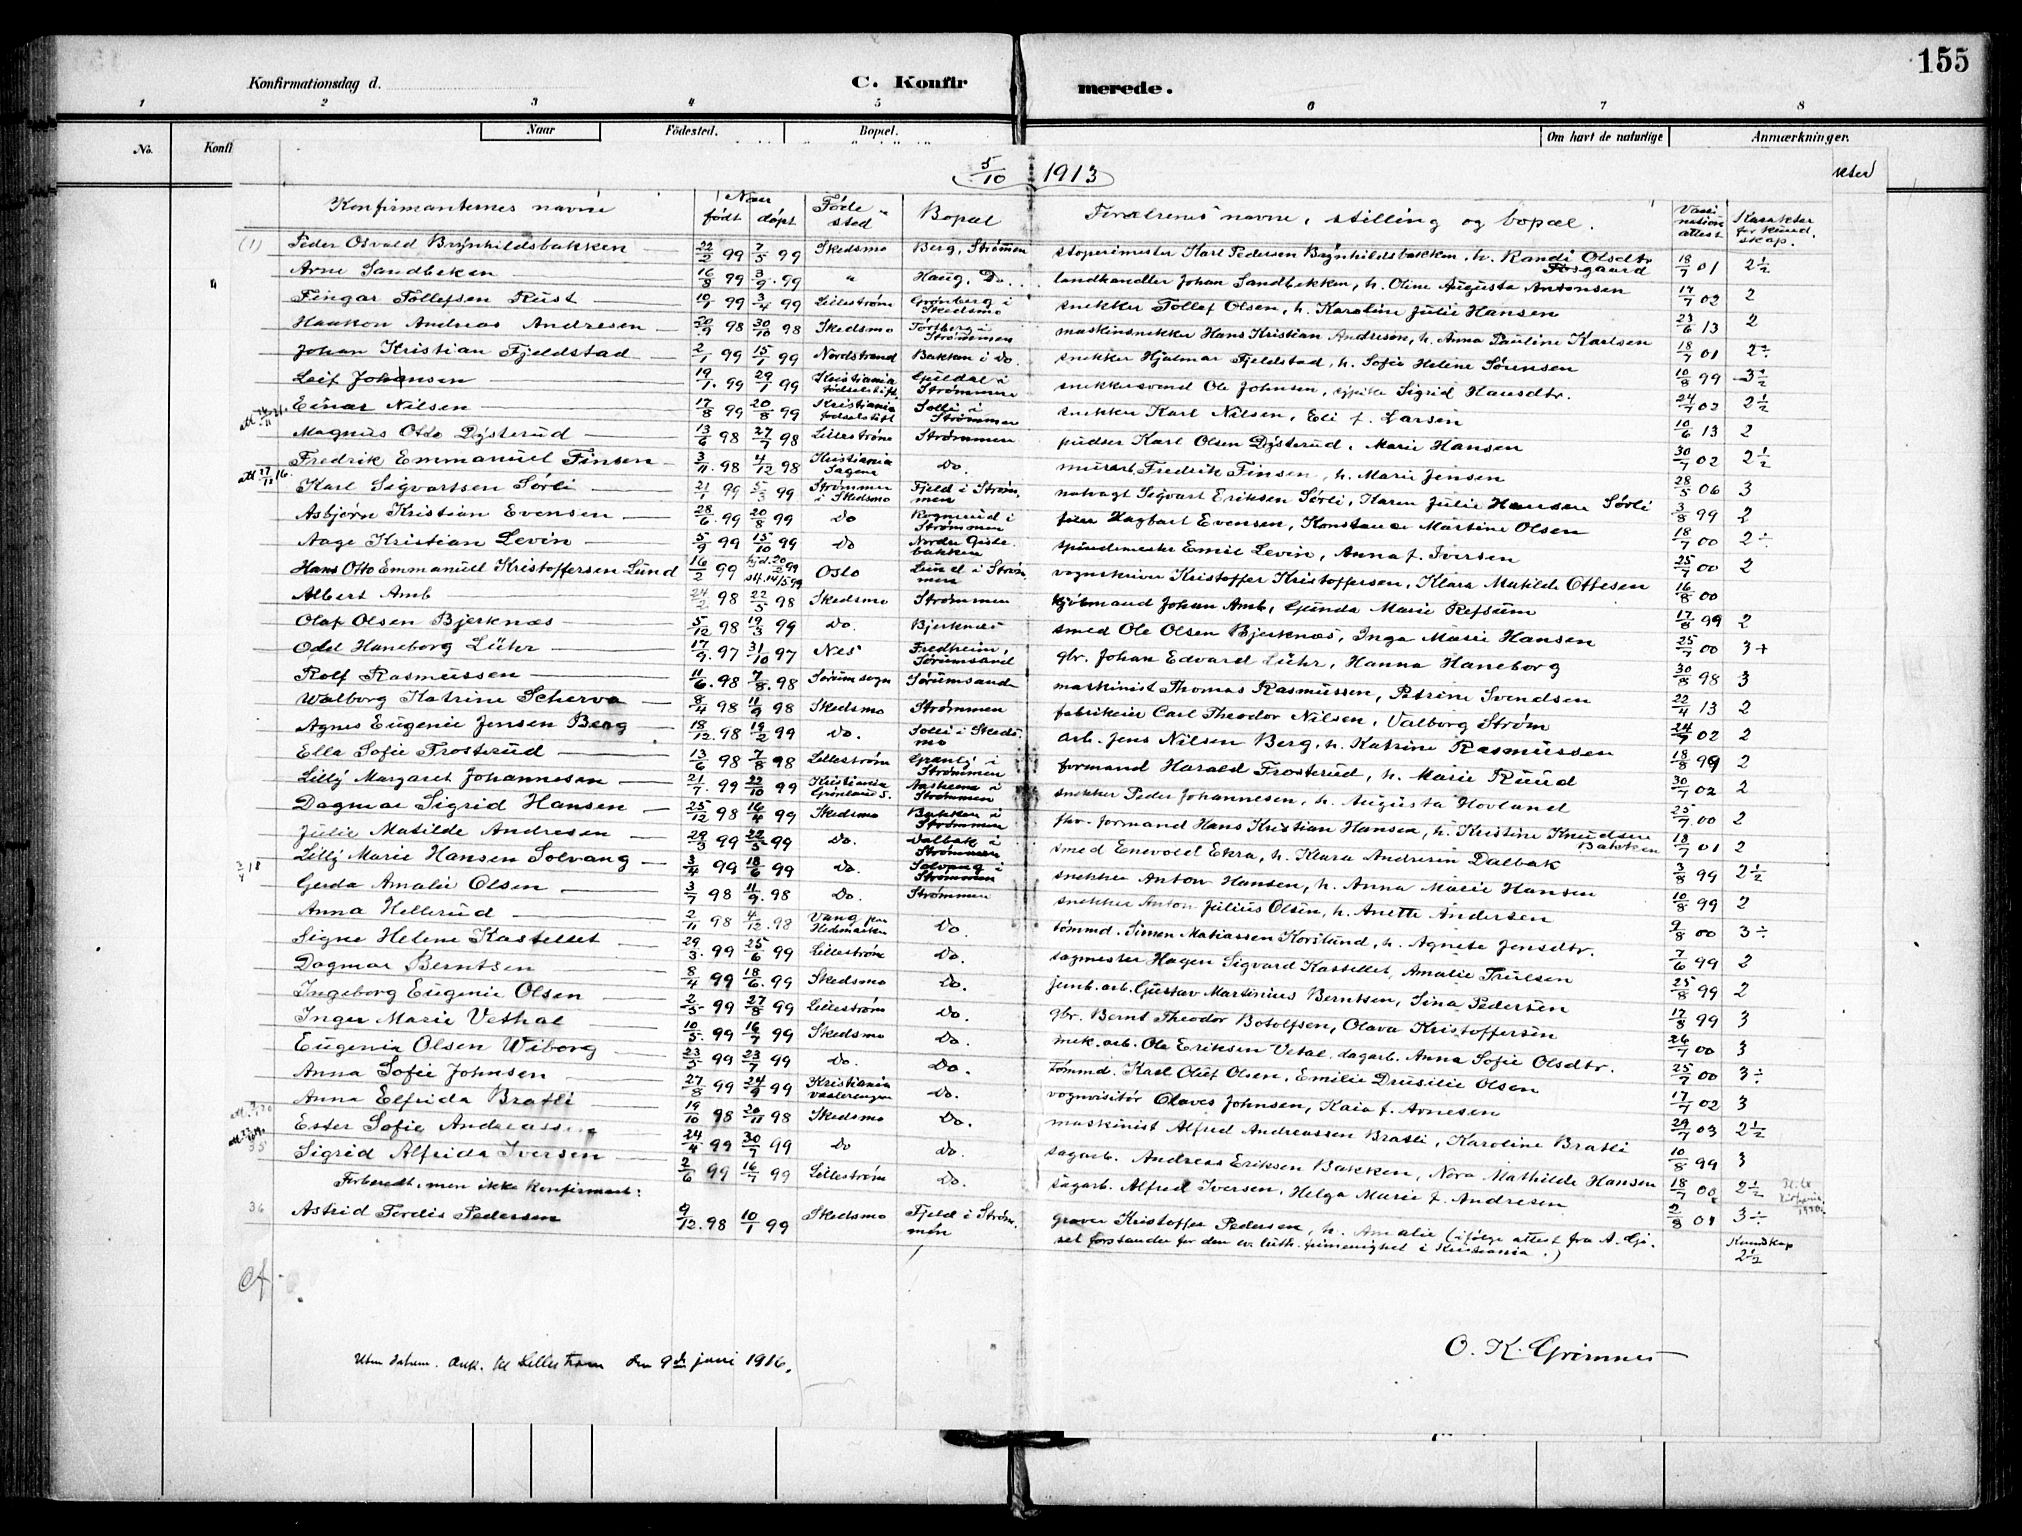 155
Konfirmationsdag d. C. Konfirmerede.
1 2 3 4 5 6 7 8
No. Konfi Naar Fødested. Bopæl. Om havt de naturlige Anmærkninger.
5/10 1913
Konfirmanternes navne Naar født døpt Føde sted Bopæl Forældrenes navne, stilling og bopæl. Vacci nations attest Karakter for kund skap.
(1) Peder Osvald Brynhildsbakken 22/2 99 7/5 99 Skedsmo Berg, Strømmen stoperimester Karl Pedersen Brynhildsbakken, h. Randi Olsdtr Fosgaard 18/7 01 2½
Arne Sandbekken 16/8 99 3/9 99 " Haug, Do. landhandler Johan Sandbekken, h. Oline Augusta Antonsen 17/7 02 2
Fingar Tollefsen Rust 99 3/4 99 Lillestrøm Grønberg i Skedsmo snekker Tollef Olsen, h. Karoline Julie Hansen 23/6 13 2
Haakon Andreas Andresen 20/9 98 30/10 98 Skedsmo Torsberg i Strømmen maskinsnekker Hans Kristian Andresen, h. Anna Pauline Karlsen 18/7 01 2÷
Johan Kristian Fjeldstad 2/1 99 15/1 99 Nordstrand Bakken i do. snekker Hjalmar Fjeldstad, h. Sofie Helene Sørensen 10/8 99 3½
Leif Johansen 19/1 99 29/1 99 Kristiania fødselsstift. Guldal i Strømmen snekkersvend Ole Johnsen, Sigrid Hansdtr. 24/7 02 2½
Einar Nilsen 17/8 99 20/8 99 Kristiania fødselsstift Solli i Strømmen snekker Karl Nilsen, Edi f. Larsen 10/6 13 2
Magnus Otto Dysterud 13/6 98 27/7 98 Lillestrøm Strømmen pudser Karl Olsen Dysterud, Marie Hansen 30/7 02 2½
Fredrik Emmanuel Finsen 3/11 98 4/12 98 Kristiania Sagene Do. murarb. Fredrik Finsen, h. Marie Jensen 28/5 06 3
att 17/12 16. Karl Sigvartsen Sørli 21/1 99 5/3 99 Strømmen i Skedsmo Fjeld i Strømmen natvagt Sigvart Eriksen Sørli, Karen Julie Hansen Sørli 3/8 99 2
Asbjørn Kristian Evensen 28/6 99 20/8 99 Do Rognerud i Strømmen Hagbart Evensen, Konstance Martine Olsen 18/7 00 2÷
Aage Kristian Levin 5/9 99 15/10 99 Do Nordre bakken Emil Levin, Anna f. Iversen 25/7 00 2
Hans Otto Emmanuell Kristoffersen Lund 16/2 99 hjd. 20/2 99 st. 14/5 99 Oslo Lund i Strømmen vognskriver Kristoffer Kristoffersen, Klara Matilde Ottesen 16/8 00
Albert Amb 24/2 98 22/5 98 Skedsmo Strømmen kjøbmand Johan Amb, Gunda Marie Refsum 17/8 99 2
Olaf Olsen Bjerknæs 5/12 98 19/3 99 Do. Bjerknæs smed Ole Olsen Bjerknæs, Inga Marie Hansen 25/7 00 3+
Odd Haneborg Lühr 17/9 97 31/10 97 Nes Fredheim, Sørumsand gbr. Johan Edvard Lühr, Hanna Haneborg 30/8 98 3
Rolf Rasmussen 11/6 98 7/8 98 Sørum sogn Sørumsand maskinist Thomas Rasmussen, Petrine Svendsen 22/4 13 2
Walborg Katrine Scherva 8/4 98 11/9 98 Skedsmo Strømmen fabrikeier Carl Theodor Nilsen, Valborg Strøm 24/7 02 2
Agnes Eugenie Jensen Berg 18/12 98 19/2 99 Do. Solli i Skedsmo arb. Jens Nilsen Berg, h. Katrine Rasmussen 18/8 99 2
Ella Sofie Frosterud 13/6 98 7/8 98 Lillestrøm Granly i Strømmen formand Harald Frosterud, h. Marie Ruud 30/7 02 2
Lilly Margaret Johannesen 21/7 99 22/10 99 Kristiania Grønland S. Aasheim i Strømmen snekker Peder Johannesen, h. Augusta Hovland 25/7 00 2
Dagmar Sigrid Hansen 25/12 98 16/4 99 Skedsmo Bakken i Strømmen fhv. formand Hans Kristian Hansen, h. Kristine Knudsen Bakken 18/7 01 2
Julie Matilde Andresen 29/3 99 22/5 99 Do. Dalbak i Strømmen smed Enevold Ekra, h. Klara Andresen Dalbak 3/8 99 2½
3/4 18 Lilly Marie Hansen Solvang 3/4 99 18/6 99 Do. Solvang i Strømmen snekker Anton Hansen, h. Anna Marie Hansen 10/8 99 2
Gerda Amalie Olsen 3/7 98 11/9 98 Do. Strømmen snekker Anton Julius Olsen, h. Anette Andersen 9/8 00 3÷
Anna Hellerud 2/11 98 4/12 98 Vang paa Hedemarken Do. tømmd. Simen Matiassen Korslund, h. Agnete Jensdtr. 7/6 99 2
Signe Helene Kastellet 29/3 99 25/6 99 Lillestrøm Do. sagmester Hagen Sigvard Kastellet, Amalie Trulsen 25/8 99 2
Dagmar Berntsen 8/4 99 18/6 99 Skedsmo Do. jernb. arb. Gustav Martinius Berntsen, Lina Pedersen 17/8 99 3
Ingeborg Eugenie Olsen 2/5 99 27/8 99 Lillestrøm Do. gbr. Bernt Theodor Botolfsen, Olava Kristoffersen 26/7 00 3
Inger Marie Vethal 10/5 99 16/7 99 Skedsmo Do. mek. arb. Ole Eriksen Vetal, dagarb. Anna Sofie Olsdtr. 25/7 00 3÷
Eugenia Olsen Wiborg 23/5 99 23/7 99 Do. Do. tømmd. Karl Oluf Olsen, Emilie Drusilie Olsen 17/7 02 3
Anna Sofie Johnsen 27/8 99 24/9 99 Kristiania vaalerengen Do. vognvisitør Olaves Johnsen, Kaia f. Arnesen 29/7 03 2½
Anna Elfrida Bratli 19/10 98 20/11 98 Skedsmo Do. maskinist Alfred Andreassen Bratli, Karoline Bratli 10/8 99 3
Ester Sofie Andreassen 24/4 99 30/7 99 Do Do. sagarb. Andreas Eriksen Bakken, Nora Mathilde Hansen 18/7 00 2½
35 Sigrid Alfrida Iversen 2/6 99 16/7 99 Lillestrøm Do. sagarb. Alfred Iversen, Helga Marie f. Andresen 2/8 01 3÷
Forberedt, men ikke konfirmert:
36 Astrid Tordis Pedersen 9/12 98 10/1 99 Skedsmo Fjeld i Strømmen graver Kristoffer Pedersen, h. Amalie (ifølge attest fra A. Gjø.
sel forstander for den ev. luth. frimenighet i Kristiania.) Kundskap 2½
O. K. Grimnes
Uten datum. Ank. til Lillestrøm den 9de juni 1916.